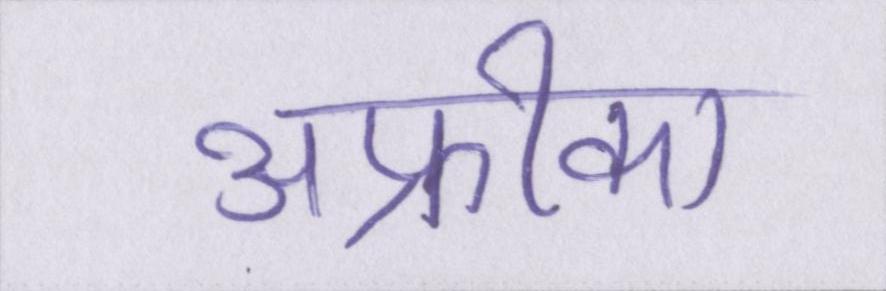 अफ्रीका